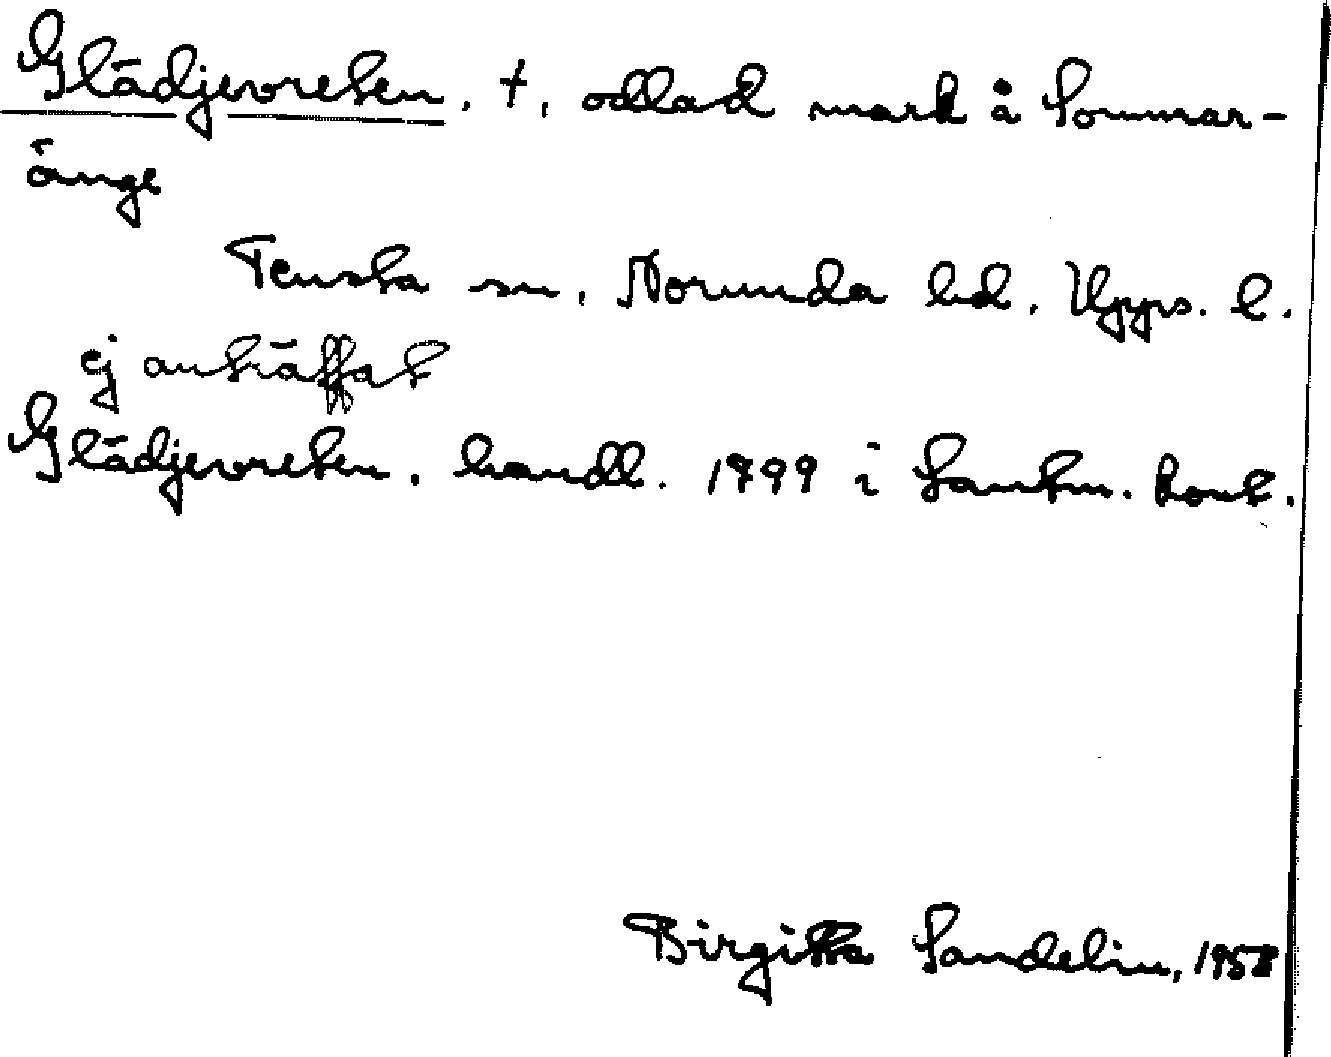 Glädjevreten, †, odlad mark å Sommar-
änge
Tensta sn, Norunda hd. Upps. l.
ej anträffat
Glädjevreten, handl. 1799 i Lantm. kont.
Birgitta Sandelin, 1958